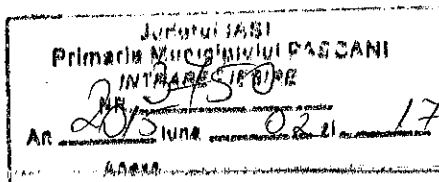 Judeţul IAŞI
Primaria Municipiului PAŞCANI
INTRARE/IEŞIRE
NR. 3750
An 2015 luna 02 zi 17
Anexa